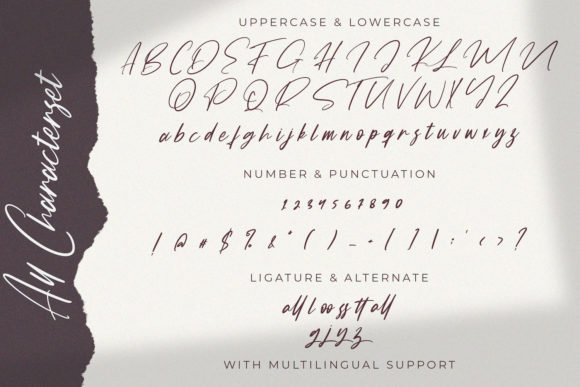 Ay Characterset
UPPERCASE & LOWERCASE
A B C D E F G H I J K L M N
O P Q R S T U V W X Y Z
a b c d e f g h i j k l m n o p q r s t u v w x y z
NUMBER & PUNCTUATION
1 2 3 4 5 6 7 8 9 0
! @ # $ % & * ( ) _ + { } | : " < > ?
LIGATURE & ALTERNATE
all l oo ss tt all
g j y z
WITH MULTILINGUAL SUPPORT